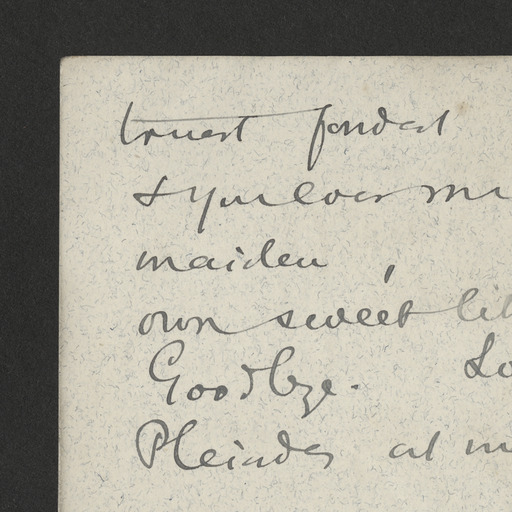 truest fondest
& your lover my
maiden,
own sweet lit
Goodbye. Lo
Pleiades at m